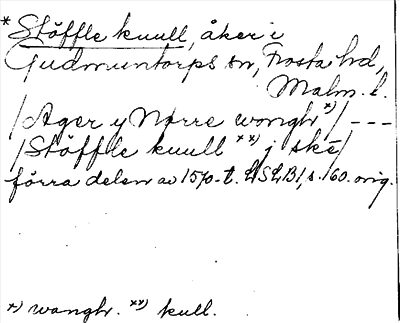 * Stöffle kuull, åker i
Gudmuntorps sn, Frosta hd,
Malm. l.
/Ager y Nørre wongh *)/ ---
/Stöffle kuull **) j ské/
förra delen av 1570-t. LSLB1, s. 160. orig.
*) wangh. **) kull.